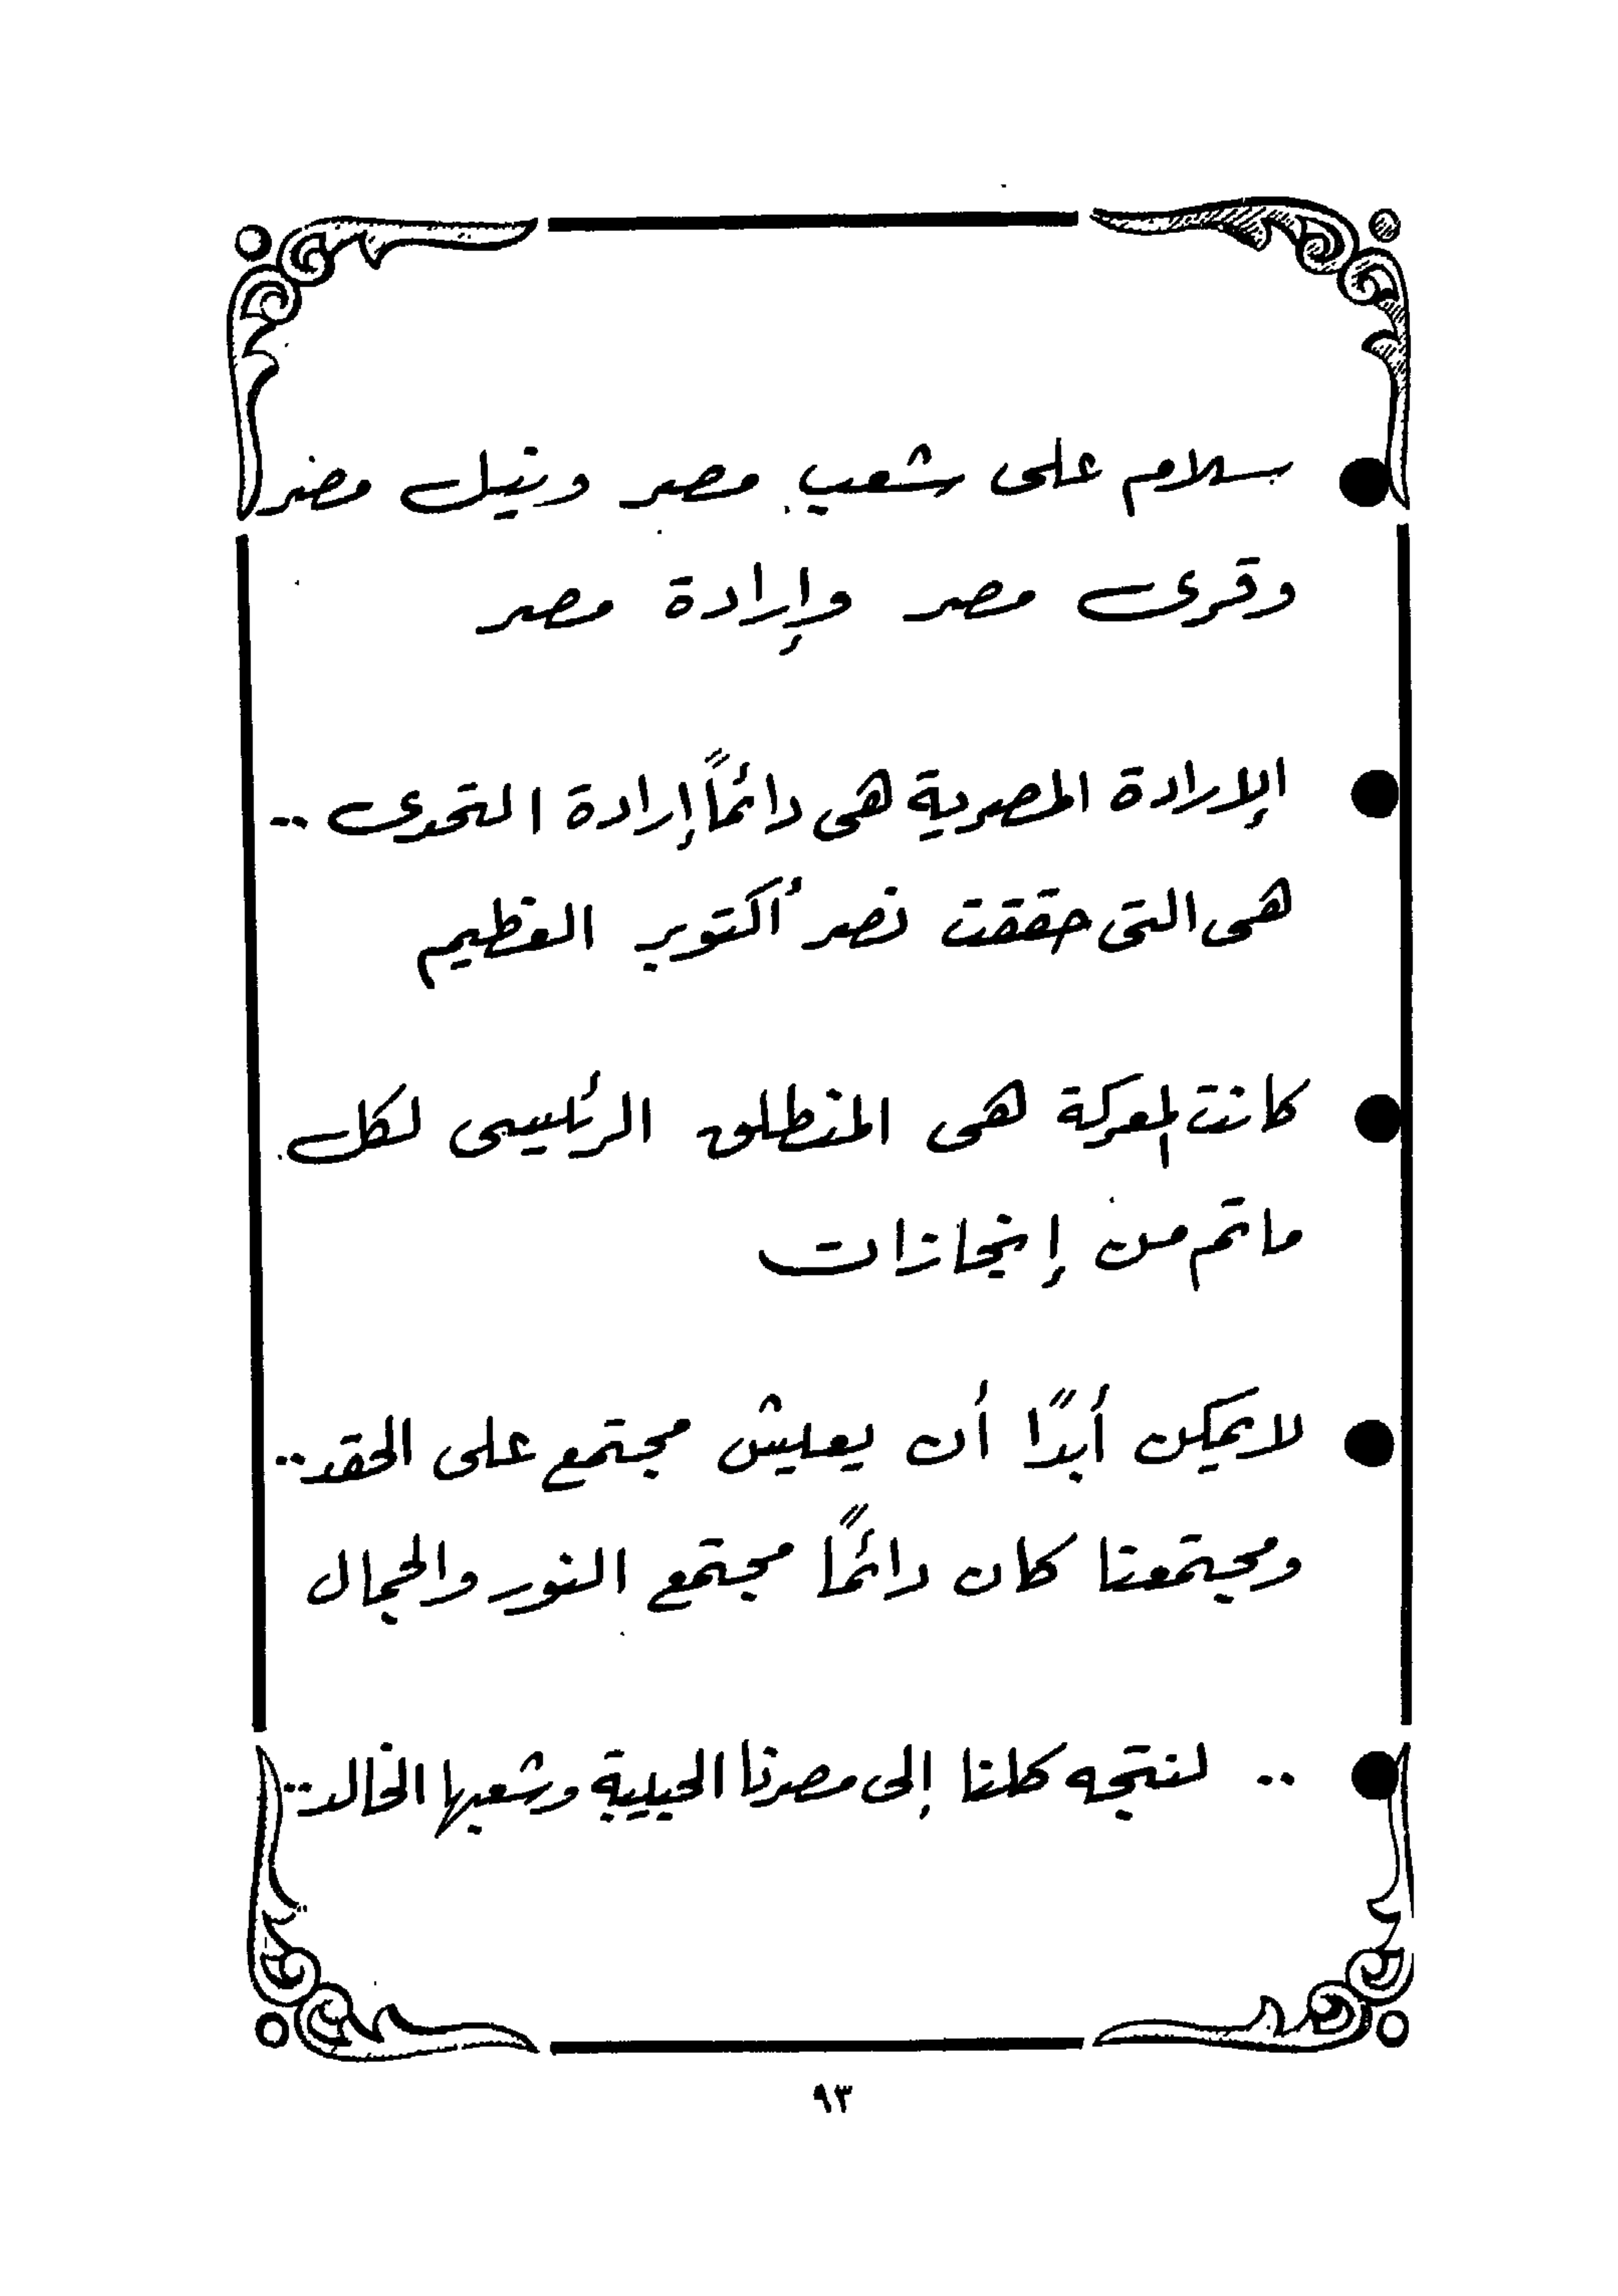 ● سلام على شعب مصر ونيل مصر
وقرى مصر وإرادة مصر
● الإرادة المصرية هى دائماً إرادة التحدى ..
هى التى حققت نصر أكتوبر العظيم
● كانت المعركة هى المنطلق الرئيسى لكل
ماتم من إنجازات
● لايمكن أبدًا أن يعيش مجتمع على الحقد ..
ومجتمعنا كان دائماً مجتمع النور والجمال
● .. لنتجه كلنا إلى مصرنا الحبيبة وشعبها الخالد ..
٩٣